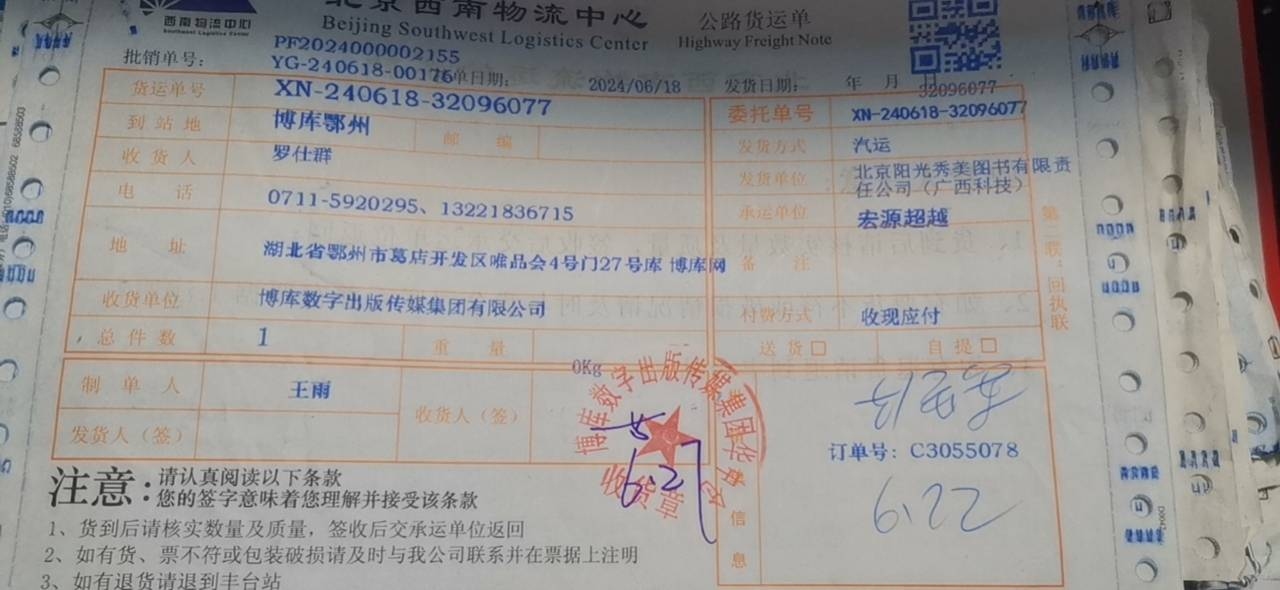 北京西南物流中心
西南物流中心
Southwest Logistics Center
Beijing Southwest Logistics Center
公路货运单
Highway Freight Note
批销单号： PF2024000002155
YG-240618-00176 单日期： 2024/06/18 发货日期： 年 月 日
32096077
货运单号 XN-240618-32096077 委托单号 XN-240618-32096077
到站地 博库鄂州 邮编 发货方式 汽运
收货人 罗仕群 发货单位 北京阳光秀美图书有限责
任公司（广西科技）
电话 0711-5920295、13221836715 承运单位 宏源超越
地址 湖北省鄂州市葛店开发区唯品会4号门27号库 博库网 备注
收货单位 博库数字出版传媒集团有限公司 付费方式 收现应付
总件数 1 重量 0Kg 送货 自提
制单人 王雨 收货人（签）
发货人（签）
博库数字出版传媒集团华中
收货章
6.27
订单号：C3055078
6.22
信息
第二联：回执联
注意： 请认真阅读以下条款
您的签字意味着您理解并接受该条款
1、货到后请核实数量及质量，签收后交承运单位返回
2、如有货、票不符或包装破损请及时与我公司联系并在票据上注明
3、如有退货请退到丰台站